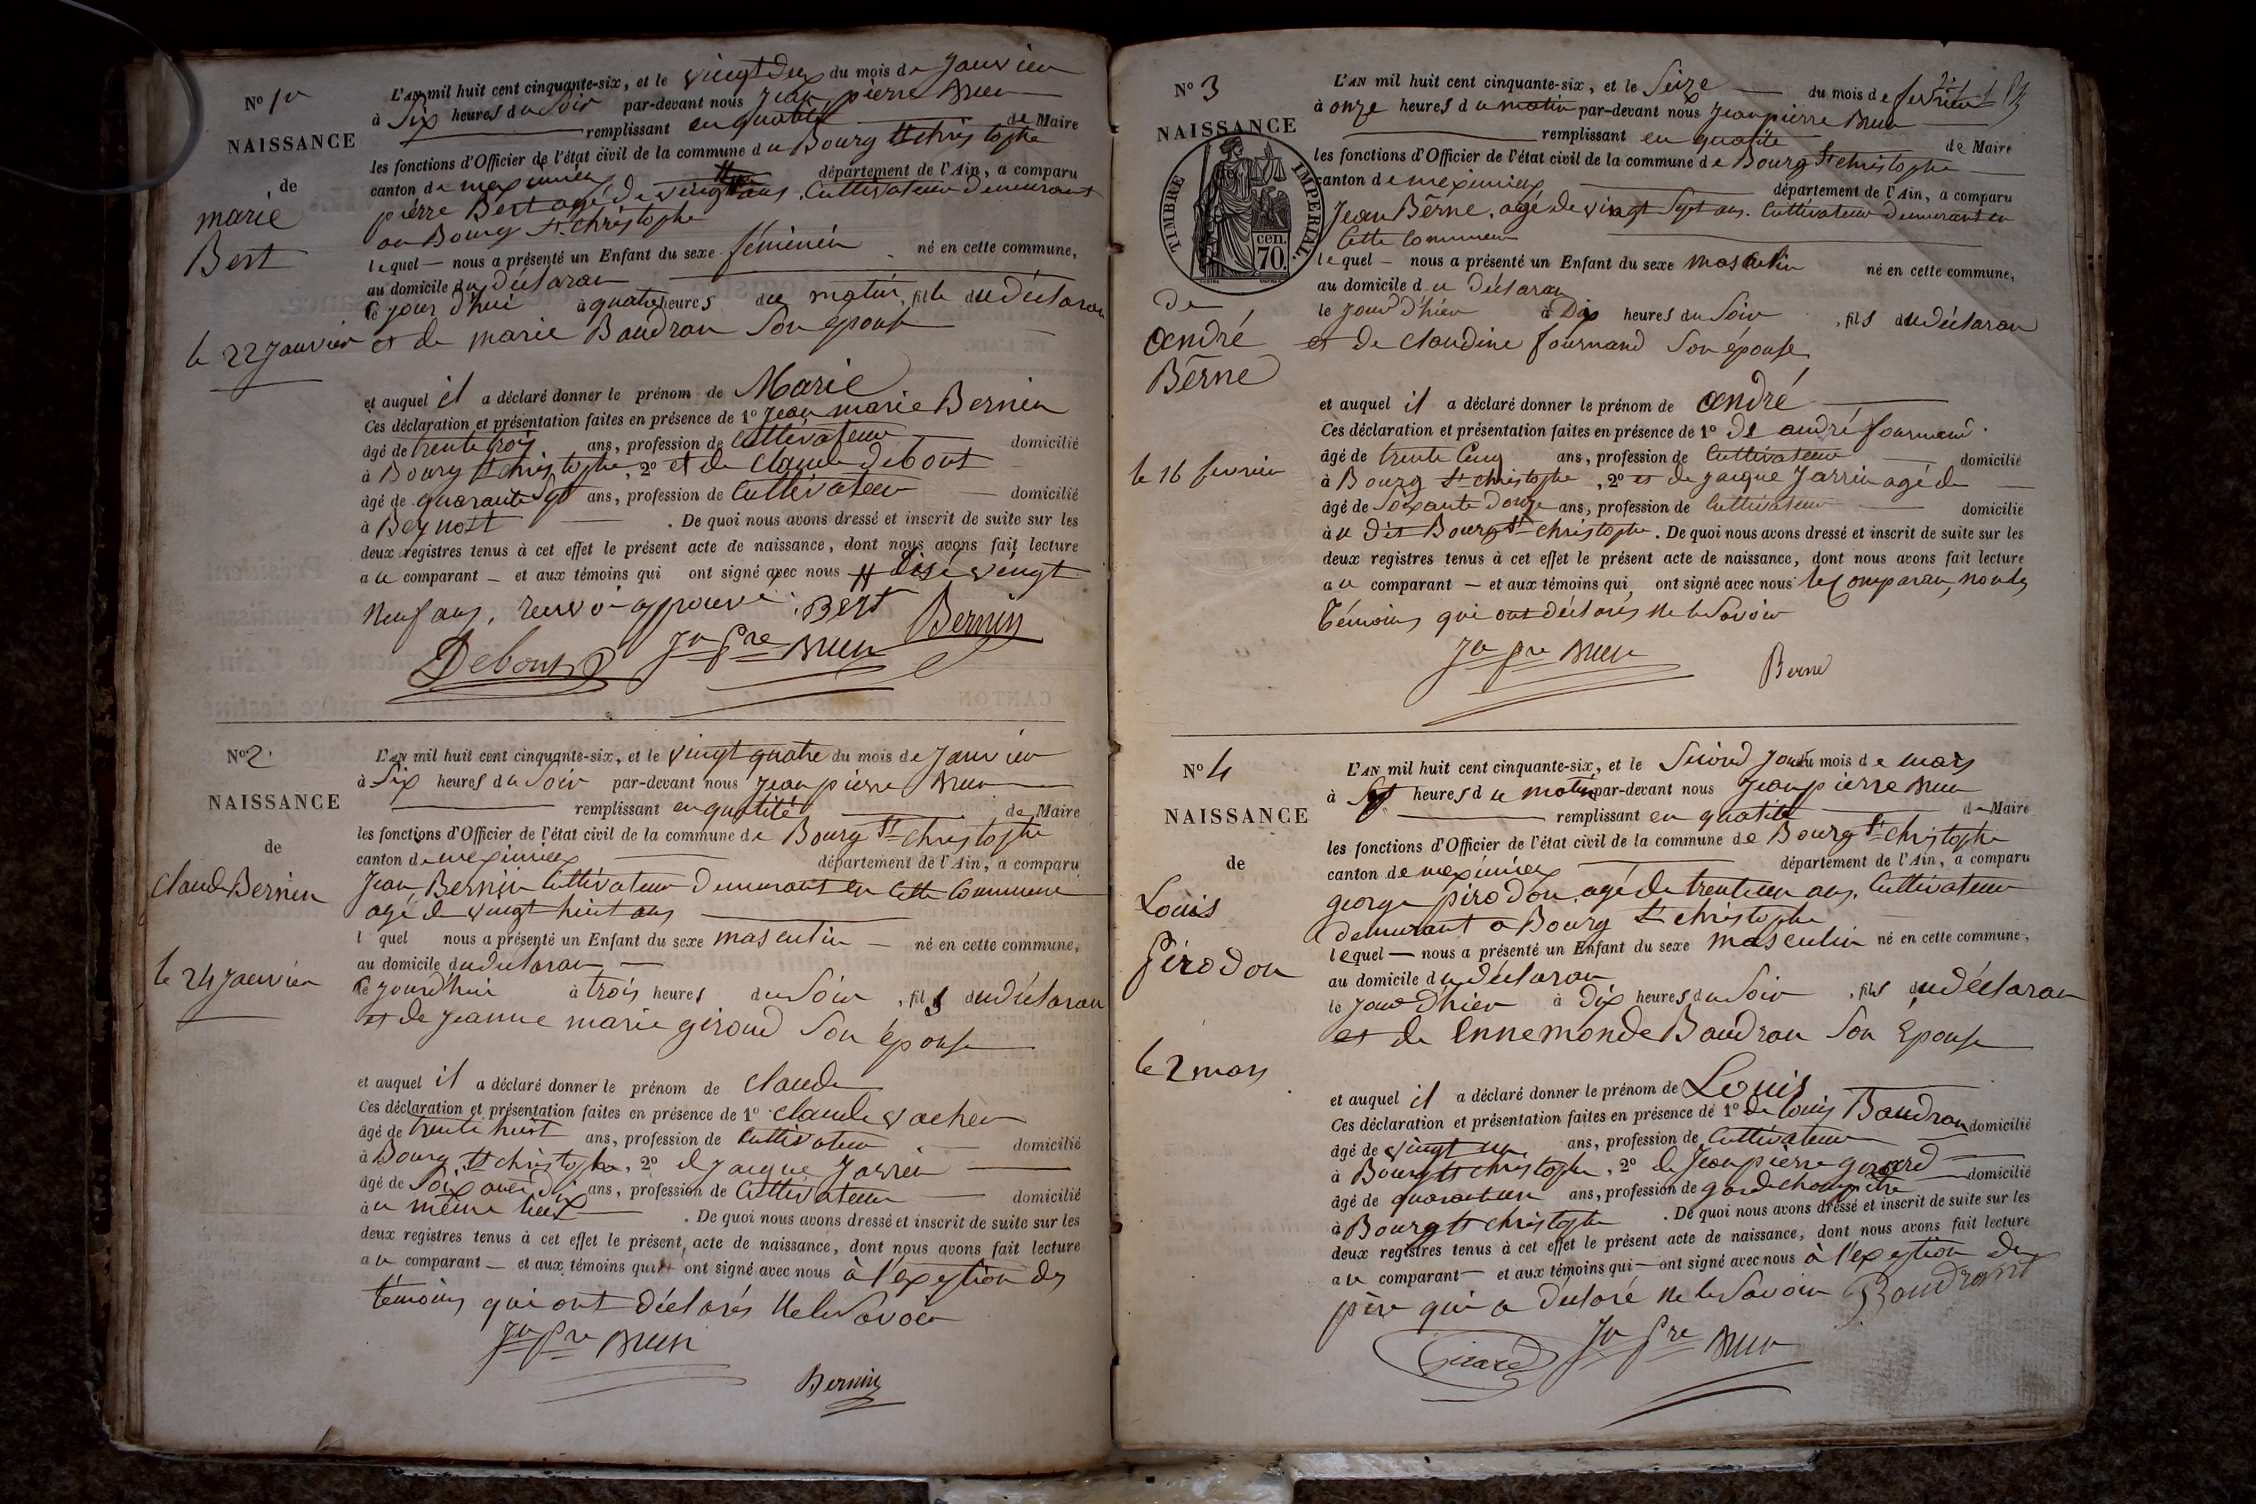 No 1er
NAISSANCE
de
marie
Bert
le 22 Janvier
L'AN mil huit cent cinquante-six, et le vingt deux du mois de Janvier
à Six heures du Soir par-devant nous Jean pierre Brun
remplissant en qualité de Maire
les fonctions d'Officier de l'état civil de la commune du Bourg St christophe
canton de meximieux département de l'Ain, a comparu
pierre Bert agé de vingt ans. Cultivateur Demeurant
au Bourg St christophe
lequel — nous a présenté un Enfant du sexe féminin né en cette commune,
au domicile du Déclaran
Ce jour d'hui à quatre heures du matin, fille du déclaran
et de marie Baudran Son épouse
et auquel il a déclaré donner le prénom de Marie
Ces déclaration et présentation faites en présence de 1o Jean marie Bernin
âgé de trente trois ans, profession de Cultivateur domicilié
à Bourg St christophe, 2o et de Claude debout
âgé de quarante Sept ans, profession de Cultivateur — domicilié
à Beynost — . De quoi nous avons dressé et inscrit de suite sur les
deux registres tenus à cet effet le présent acte de naissance, dont nous avons fait lecture
au comparant — et aux témoins qui ont signé avec nous # dise vingt
neuf ans, renvoi approuvé. BERT Bernin
Debout Jn Pre Brun
No 2.
NAISSANCE
de
claude Bernin
le 24 Janvier
L'AN mil huit cent cinquante-six, et le vingt quatre du mois de Janvier
à Six heures du Soir par-devant nous Jean pierre Brun
remplissant en qualité de Maire
les fonctions d'Officier de l'état civil de la commune de Bourg St christophe
canton de meximieux département de l'Ain, a comparu
Jean Bernin Cultivateur Demeurant en Cette Commune
agé de vingt huit ans
l quel nous a présenté un Enfant du sexe masculin — né en cette commune,
au domicile du déclaran —
Ce jourd'hui à trois heures du Soir, fils du déclaran
et de jeanne marie giroud Son épouse
et auquel il a déclaré donner le prénom de claude
Ces déclaration et présentation faites en présence de 1o claude vacher
âgé de trente huit ans, profession de Cultivateur — domicilié
à Bourg St christophe, 2o et jacque Jarrin
âgé de ans, profession de Cultivateur — domicilié
au même lieu — . De quoi nous avons dressé et inscrit de suite sur les
deux registres tenus à cet effet le présent acte de naissance, dont nous avons fait lecture
au comparant — et aux témoins qui ont signé avec nous à l'exeption des
témoins qui ont déclarés ne le Savoir
Jn Pre Brun
Bernin
No 3
NAISSANCE
TIMBRE IMPERIAL.
70. cen.
de
andré
Bērne
le 16 fevrier
L'AN mil huit cent cinquante-six, et le Seize — du mois de fevrier
à onze heures du matin par-devant nous Jean pierre Brun
remplissant en qualité de Maire
les fonctions d'Officier de l'état civil de la commune de Bourg St christophe
canton de meximieux département de l'Ain, a comparu
Jean Bērne. agé de vingt Sept ans. Cultivateur Demeurant en
Cette Commune
lequel — nous a présenté un Enfant du sexe masculin né en cette commune,
au domicile du déclaran
le jour d'hier à Dix heures du Soir, fils du déclaran
et de claudine fournand Son épouse
et auquel il a déclaré donner le prénom de andré
Ces déclaration et présentation faites en présence de 1o de andré fournand
âgé de trente Cinq ans, profession de Cultivateur — domicilié
à Bourg St christophe, 2o et de jacque Jarrin agé de
âgé de Soixante douze ans, profession de Cultivateur — domicilié
au dit Bourg St christophe. De quoi nous avons dressé et inscrit de suite sur les
deux registres tenus à cet effet le présent acte de naissance, dont nous avons fait lecture
au comparant — et aux témoins qui ont signé avec nous le Comparan, non les
témoins qui ont déclarés ne le Savoir
Jn Pre Brun
Berne
No 4
NAISSANCE
de
Louis
Pérodon
le 2 mars
L'AN mil huit cent cinquante-six, et le Second Jour du mois de mars
à Sept heures du matin par-devant nous Jean pierre Brun
remplissant en qualité de Maire
les fonctions d'Officier de l'état civil de la commune de Bourg St christophe
canton de meximieux département de l'Ain, a comparu
george pérodon. agé de trente un ans. Cultivateur
demeurant a Bourg St christophe
lequel — nous a présenté un Enfant du sexe masculin né en cette commune,
au domicile du déclaran
le jour d'hier à dix heures du Soir, fils du déclaran
et de Ennemonde Baudran Son Epouse
et auquel il a déclaré donner le prénom de Louis
Ces déclaration et présentation faites en présence de 1o de louis Baudran domicilié
âgé de vingt un ans, profession de Cultivateur
à Bourg St christophe, 2o de Jean pierre girard — domicilié
âgé de quarante un ans, profession de garde champetre
à Bourg St christophe. De quoi nous avons dressé et inscrit de suite sur les
deux registres tenus à cet effet le présent acte de naissance, dont nous avons fait lecture
au comparant — et aux témoins qui — ont signé avec nous à l'exeption du
père qui a déclaré ne le Savoir Baudrant
Girard Jn Pre Brun